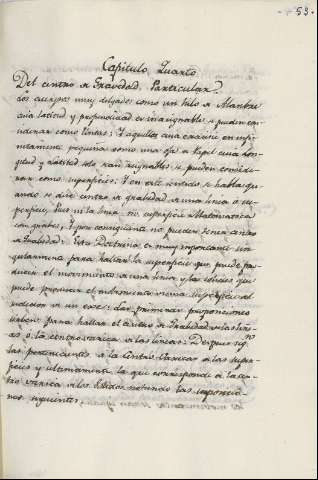 53.
Capitulo Quarto
Del centro de Gravedad Particular.
Los cuerpos muy delgados como un hilo de Alambre
cuia latitud y profundidad es inasignable se pueden con-
siderar como lineas: Y aquellos cuia crasicie es infini-
tamente pequeña como una oja de Papel cuia lon-
gitud y latitud solo son asignables se pueden conside-
rar como superficies: Y en este sentido se habla qu-
ando se dice centro de grabedad de una linea o su-
perficie, Pues ni la linea, ni superficie Matematica
son grabes, Y por consiguiente no pueden tener centro
de Grabedad. Esta Doctrina es muy importante sin-
gularmente para hallar la superficie que puede pro-
ducir el movimiento de una linea y los solidos que
puede producir el movimiento de una superficie al
rededor de un exe: Las primeras proposiciones
sirben para hallar el centro de Grabedad de las line-
as o la centrobarica de las lineas: Despues se
las pertenecientes a la Centro Varica de las super-
ficies y ultimamente la que corresponde a la cen-
tro varica de los solidos notando las
nes siguientes.